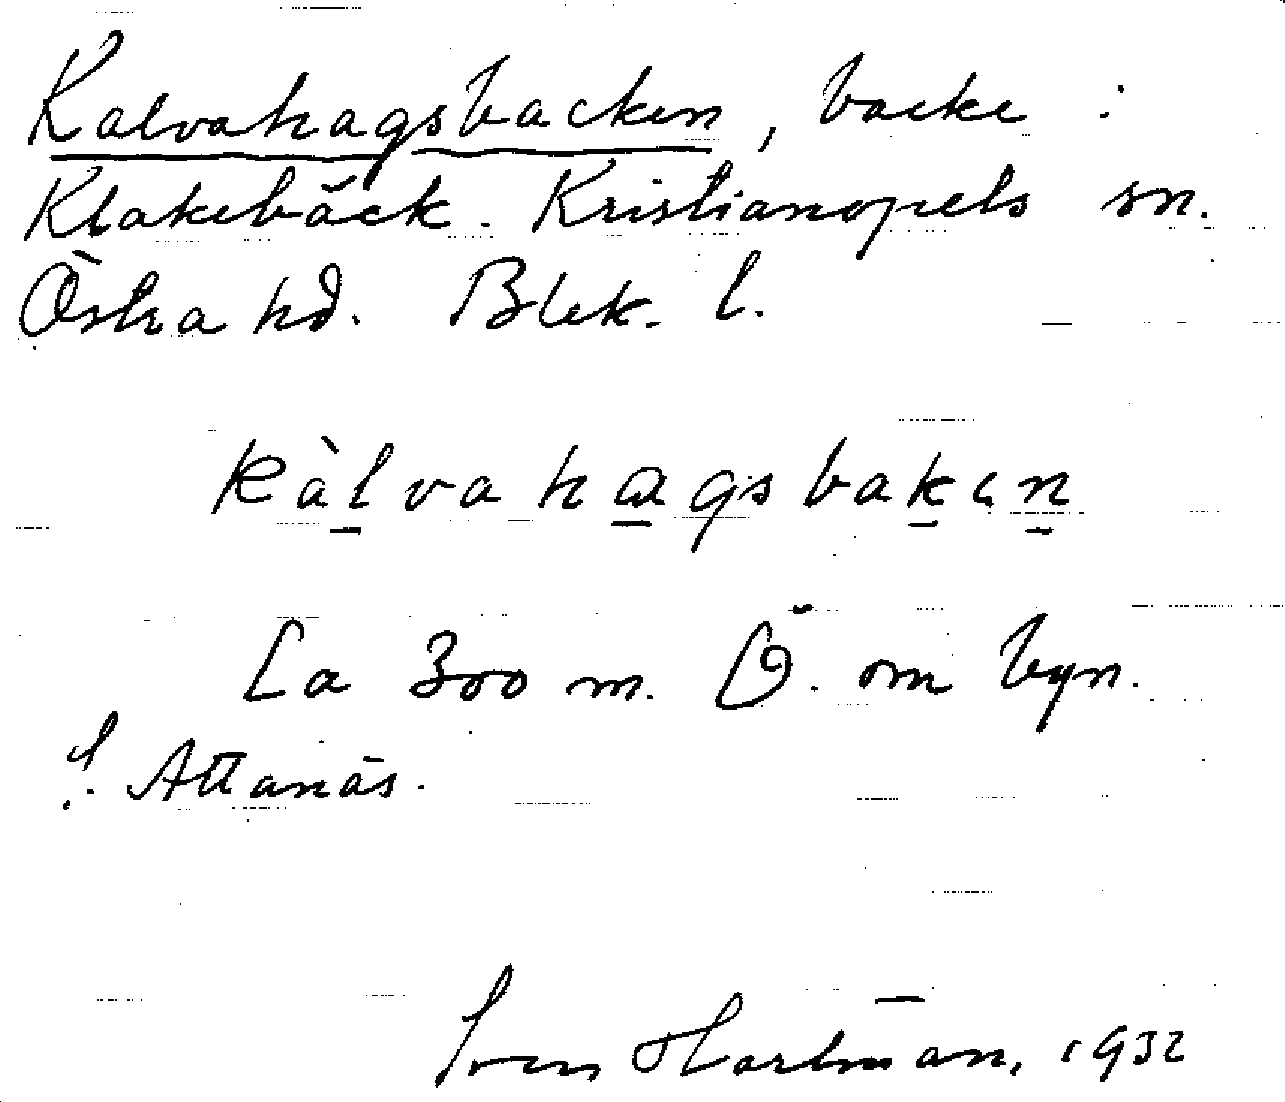 Kalvahagsbacken, backe i
Klakebäck. Kristianopels sn.
Östra hd. Blek. l.
kàlvahagsbakən
Ca 300 m. Ö. om byn.
S. Attanäs.
Sven Hartman, 1932